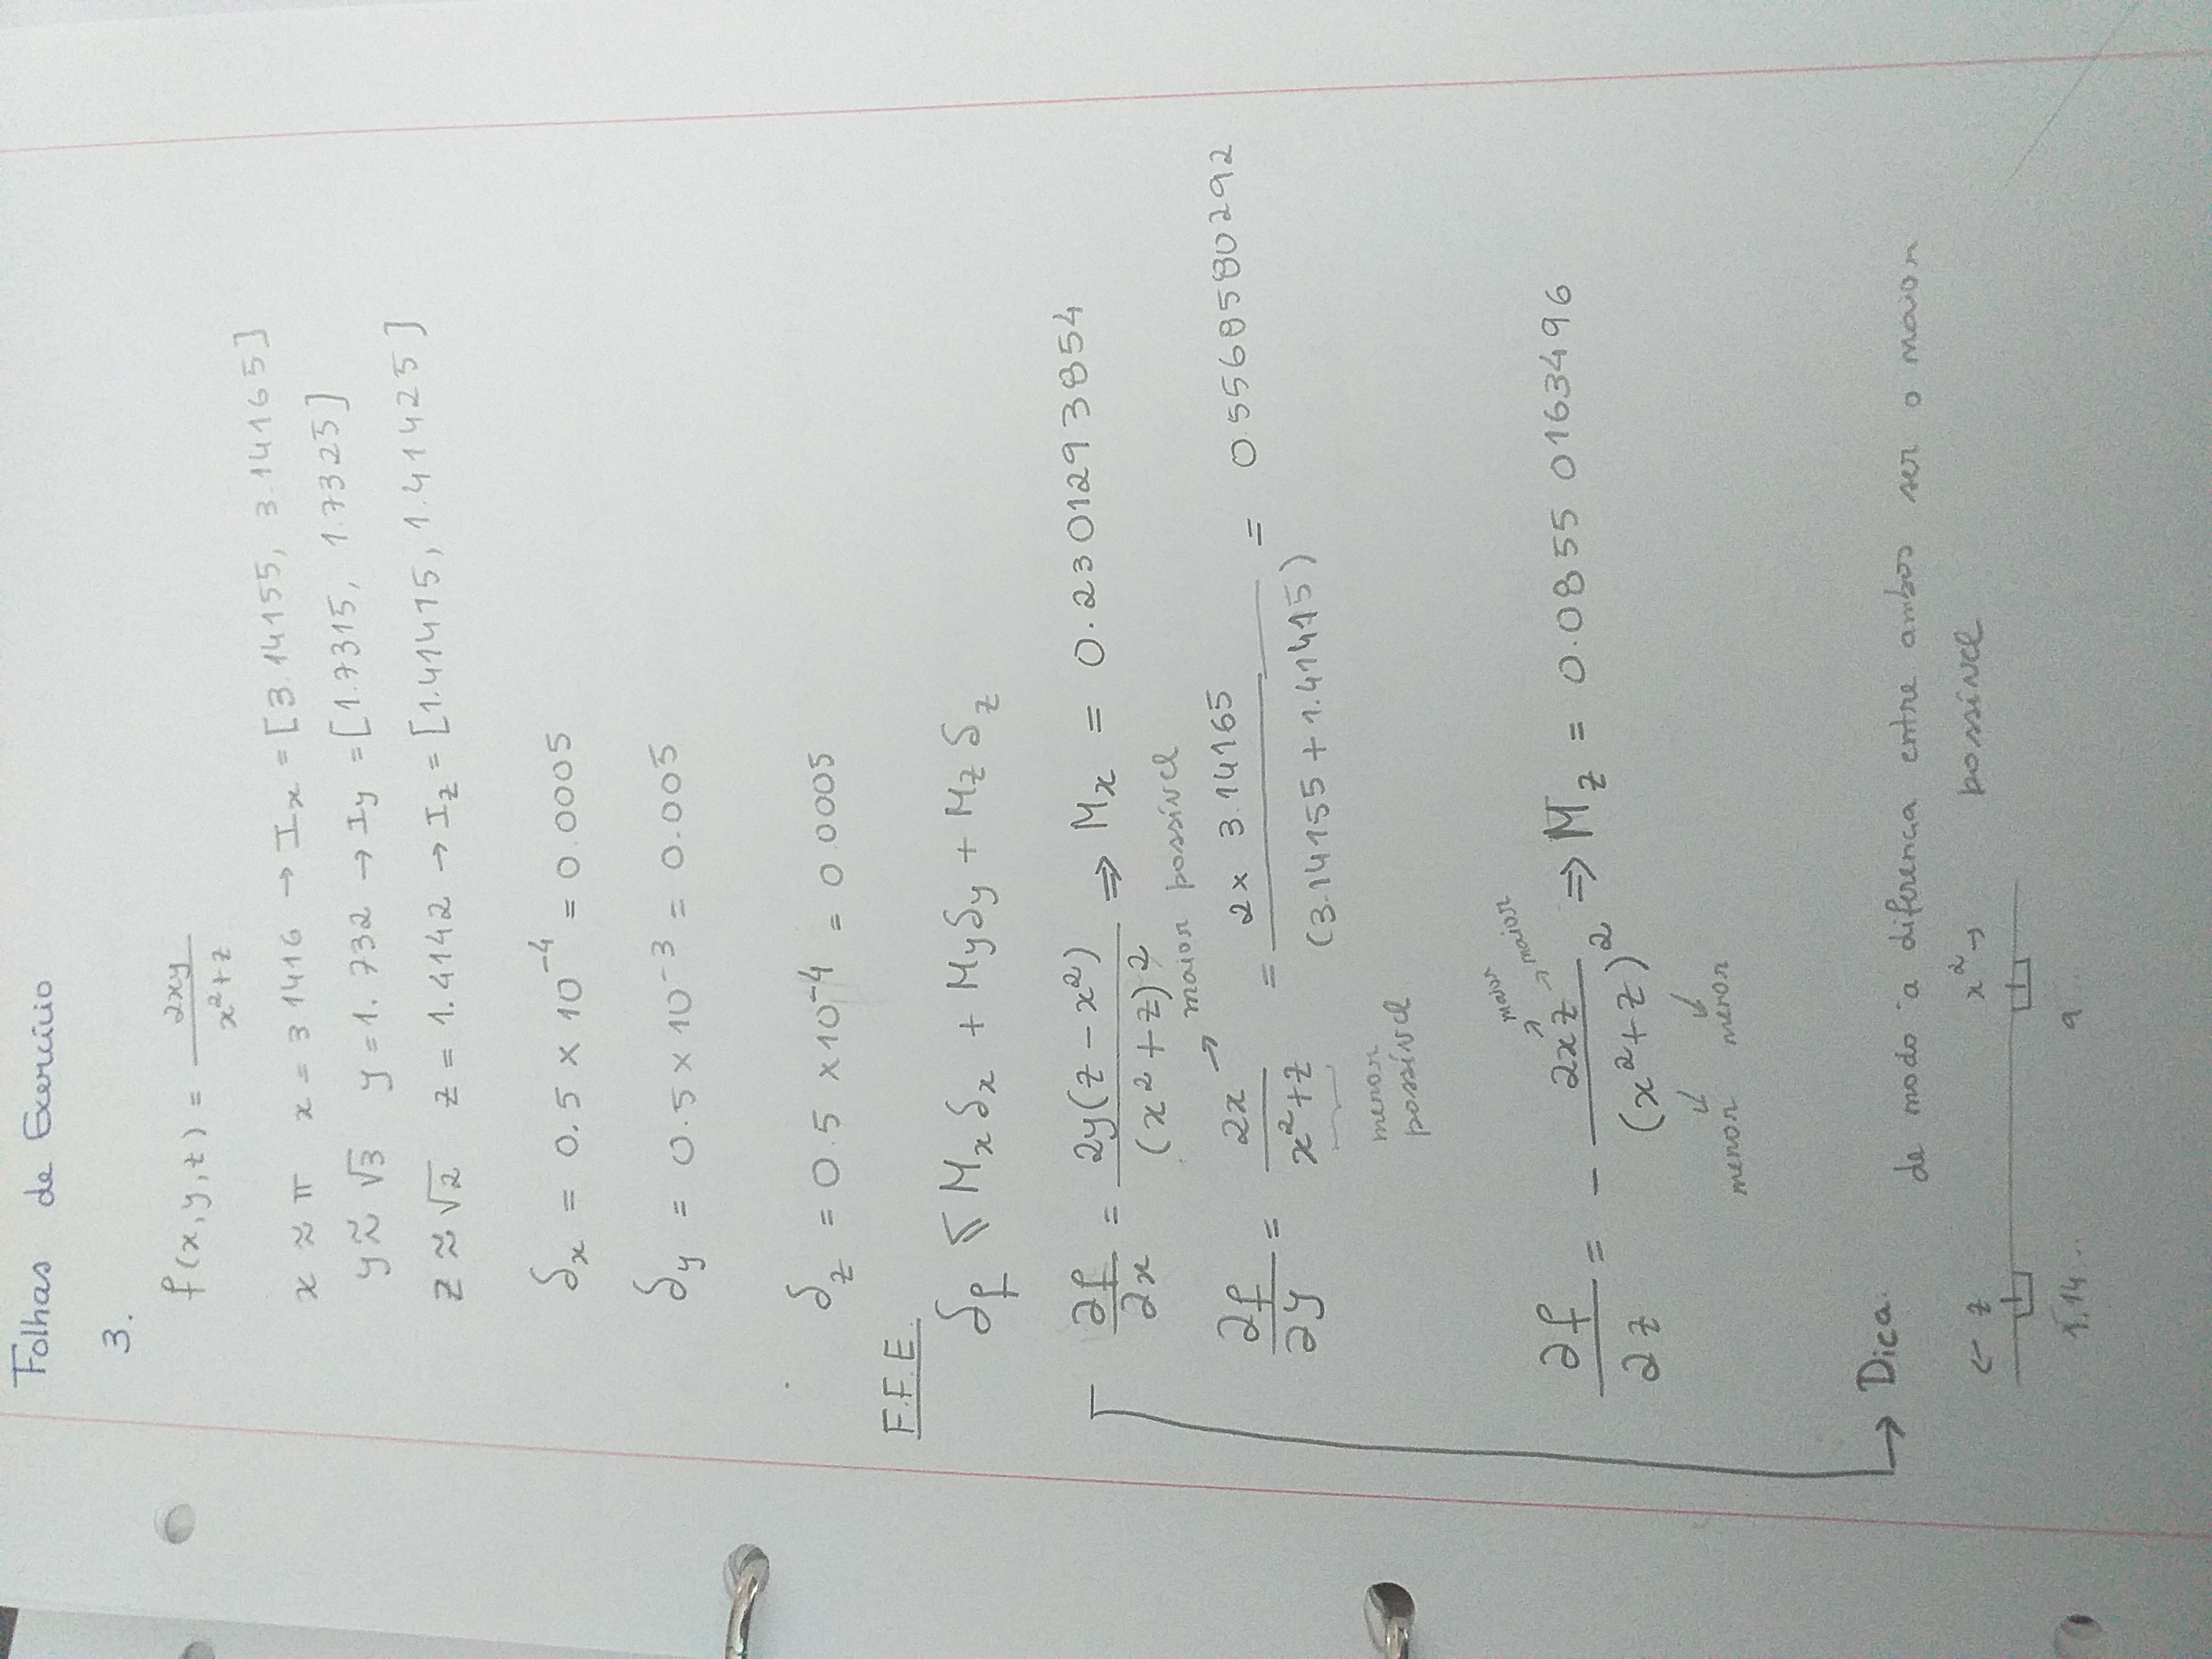 Folhas de Exercício
3.
f(x,y,z) = 2xy / x²+z
x ≈ π x = 3.1416 → Ix = [3.14155, 3.14165]
y ≈ √3 y = 1.732 → Iy = [1.7315, 1.7325]
z ≈ √2 z = 1.4142 → Iz = [1.41415, 1.41425]
δx = 0.5 × 10⁻⁴ = 0.0005
δy = 0.5 × 10⁻³ = 0.005
δz = 0.5 × 10⁻⁴ = 0.0005
F.F.E.
δf ≤ Mx δx + My δy + Mz δz
∂f/∂x = 2y(z − x²) / (x² + z)² ⇒ Mx = 0.2301293854
→ maior possível
∂f/∂y = 2x / x²+z = 2 × 3.14165 / (3.14155 + 1.41415) = 0.5568580292
menor
possível
maior
maior
∂f/∂z = − 2xz / (x²+z)² ⇒ Mz = 0.08550163496
menor menor
→ Dica.
de modo a diferenca entre ambos ser o maior
← z x² → possível
1.14.. 9..